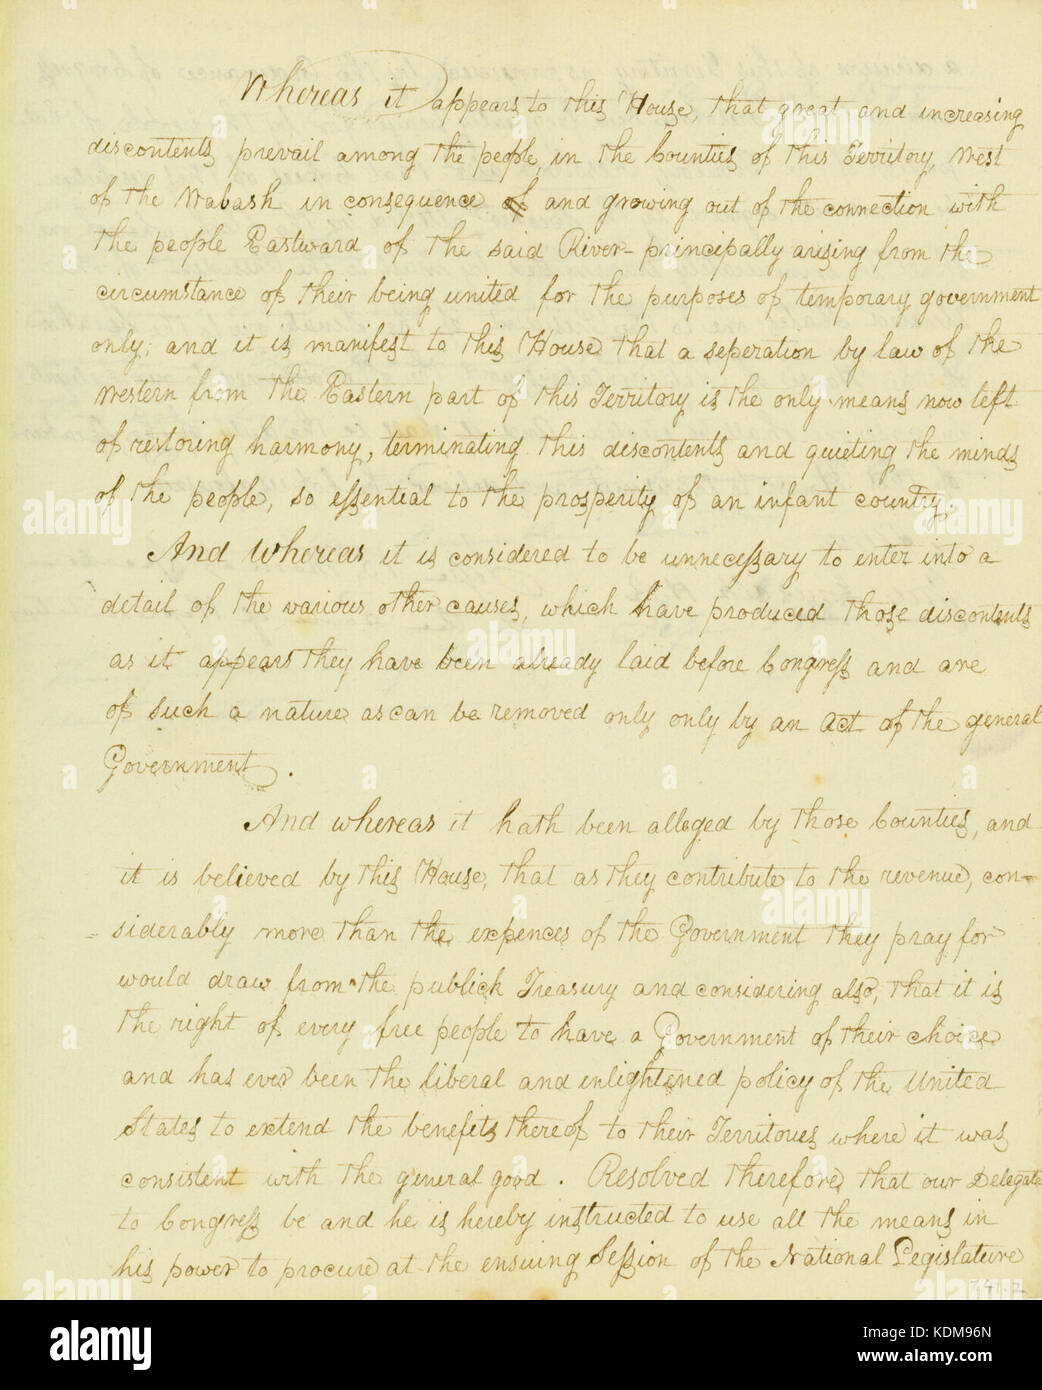 Whereas it appears to this House, that great and increasing
discontents prevail among the people in the Counties of this Territory, West
of the Wabash in consequence of and growing out of the connection with
the people Eastward of the said River - principally arising from the
circumstance of their being united for the purposes of temporary government
only; and it is manifest to this House that a seperation by law of the
Western from the Eastern part of this Territory is the only means now left
of restoring harmony, terminating this discontents and quieting the minds
of the people, so essential to the prosperity of an infant country.
And whereas it is considered to be unnecessary to enter into a
detail of the various other causes, which have produced those discontents
as it appears they have been already laid before Congress and are
of such a nature as can be removed only only by an Act of the general
Government.
And whereas it hath been alleged by those Counties, and
it is believed by this House, that as they contribute to the revenue, con-
=siderably more than the expences of the Government they pray for
would draw from the publick Treasury and considering also, that it is
the right of every free people to have a Government of their choice
and has ever been the liberal and enlightened policy of the United
States to extend the benefits thereof to their Territories where it was
consistent with the general good. Resolved therefore that our Delegate
to Congress be and he is hereby instructed to use all the means in
his power to procure at the ensuing Session of the National Legislature
alamy
KDM96N
www.alamy.com